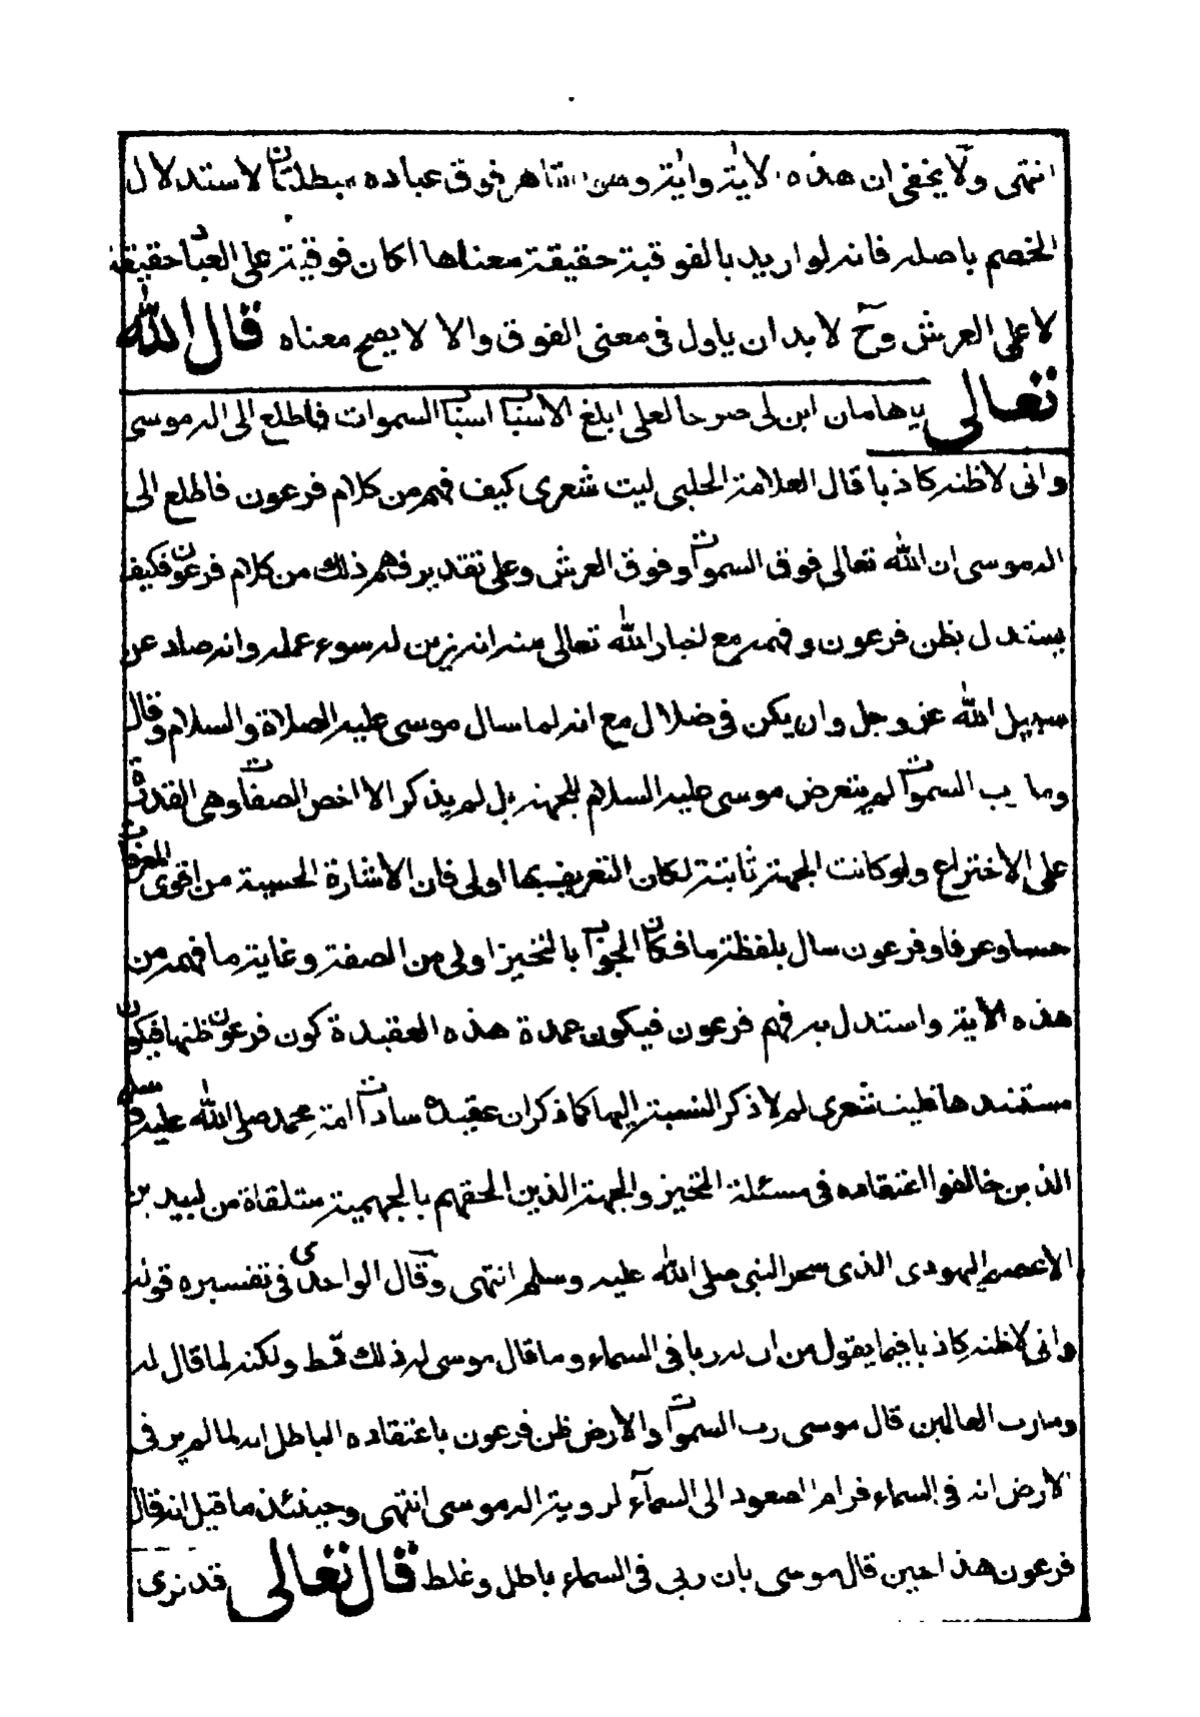 انتهى ولا يخفى ان هذه الاية واية وهو القاهر فوق عباده مبطلتان لاستدلال
الخصم باصله فانه لو اريد بالفوقية حقيقة معناها لكان فوقية على العباد حقيقة
لا على العرش وح لا بد ان ياول فى معنى الفوق والا لا يصح معناه قال الله
تعالى يا هامان ابن لى صرحا لعلى ابلغ الاسباب اسباب السموات فاطلع الى اله موسى
وانى لاظنه كاذبا قال العلامة الحلبى ليت شعرى كيف فهم من كلام فرعون فاطلع الى
اله موسى ان الله تعالى فوق السموات وفوق العرش وعلى تقدير فهم ذلك من كلام فرعون فكيف
يستدل بظن فرعون وفهمه مع اخبار الله تعالى عنه انه زين له سوء عمله وانه صاد عن
سبيل الله عز وجل وان يكن فى ضلال مع انه لما سال موسى عليه الصلاة والسلام وقال
وما رب السموات لم يتعرض موسى عليه السلام للجهة بل لم يذكر الا اخص الصفات وهى القدرة
على الاختراع ولو كانت الجهة ثابتة لكان التعريف بها اولى فان الاشارة الحسية من اقوى المعرفات
حسا وعرفا وفرعون سال بلفظة ما فكان الجواب بالتحيز اولى من الصفة وغاية ما فهمه من
هذه الاية واستدل به فهم فرعون فيكون عمدة هذه العقيدة كون فرعون ظنها فيكون
مستندها فليت شعرى لم لا ذكر النسبة اليها كما ذكر ان عقيدة سادات امة محمد صلى الله عليه وسلم
الذين خالفوا اعتقاده فى مسئلة التحيز والجهة الذين الحقهم بالجهمية متلقاة من لبيد بن
الاعصم اليهودى الذى سحر النبى صلى الله عليه وسلم انتهى وقال الواحدى فى تفسيره قوله
وانى لاظنه كاذبا فيما يقول من ان له ربا فى السماء وما قال موسى له ذلك قط ولكنه لما قال له
وما رب العالمين قال موسى رب السموات والارض ظن فرعون باعتقاده الباطل انه لما لم ير فى
الارض انه فى السماء فرام الصعود الى السماء لروية اله موسى انتهى وحينئذ ما قيل انه قال
فرعون هذا حين قال موسى بان ربى فى السماء باطل وغلط قال تعالى قد نرى